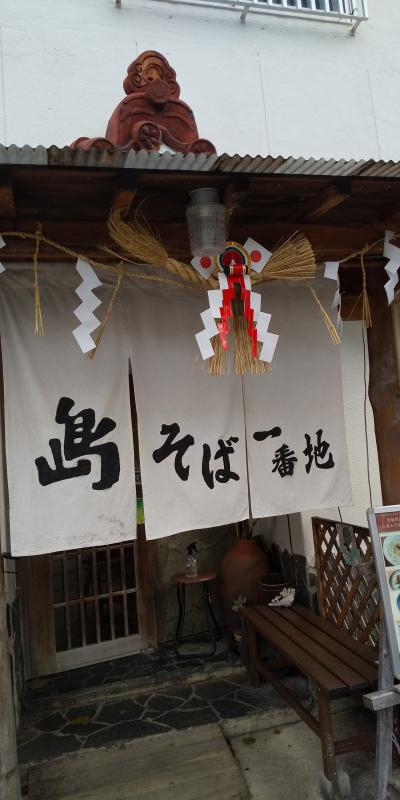 島そば一番地